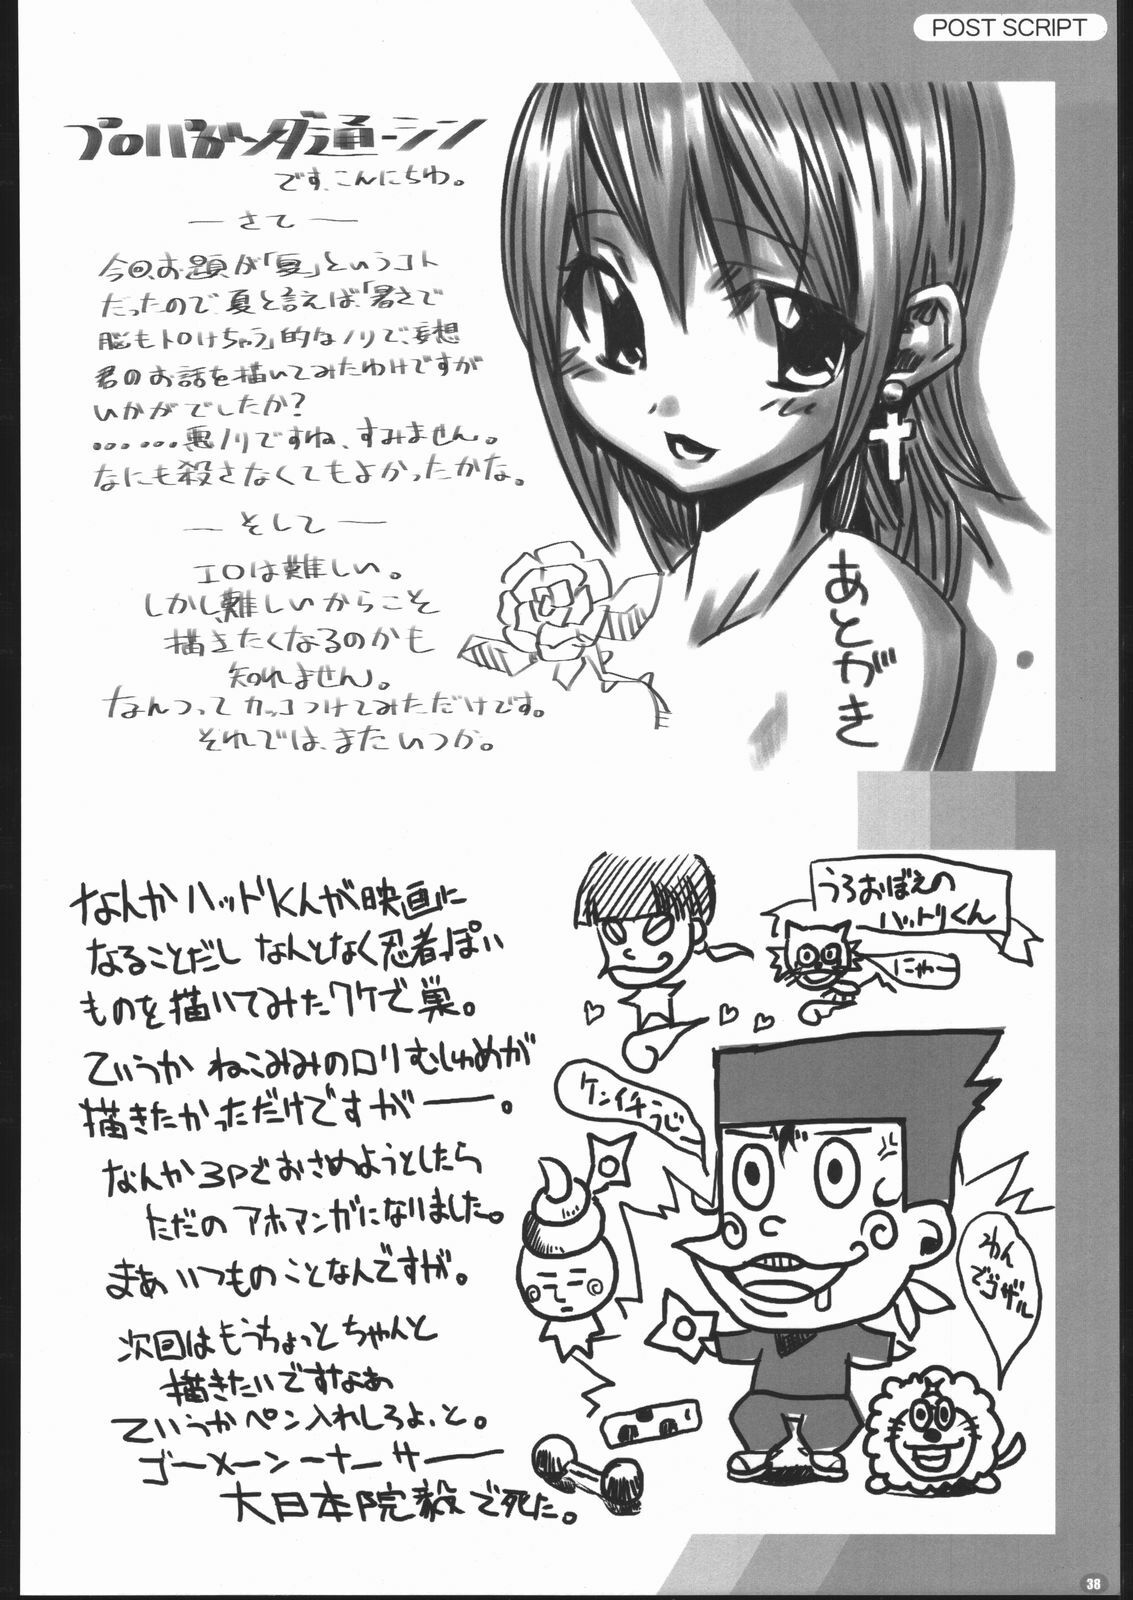 POST SCRIPT
プロパガンダ通ーシン
です、こんにちわ。
― さて ―
今回、お題が「夏」というコト
だったので、夏と言えば、「暑さで
脳もトロけちゃう」的なノリで、妄想
君のお話を描いてみたわけですが
いかがでしたか?
・・・・・・悪ノリですね、すみません。
なにも殺さなくてもよかったかな。
― そして ―
エロは難しい。
しかし、難しいからこそ
描きたくなるのかも
知れません。
なんつってカッコつけてみただけです。
それでは、またいつか。
あとがき
なんかハットドくんが映画に
なることだし なんとなく忍者っぽい
ものを描いてみたワケで巣。
ていうか ねこみみのロリむしゅめが
描きたかっただけですがー。
なんか3Pでおさめようとしたら
ただの アホマンガになりました。
まぁ いつものことなんですが。
次回はもうちょっと ちゃんと
描きたいですなあ
ていうかペン入れしろよ、と。
ゴーメーンーナーサー
大日本院毅で死た。
うろおぼえの
ハットリくん
にゃー
ケンイチうじ
わん
でゴザル
38